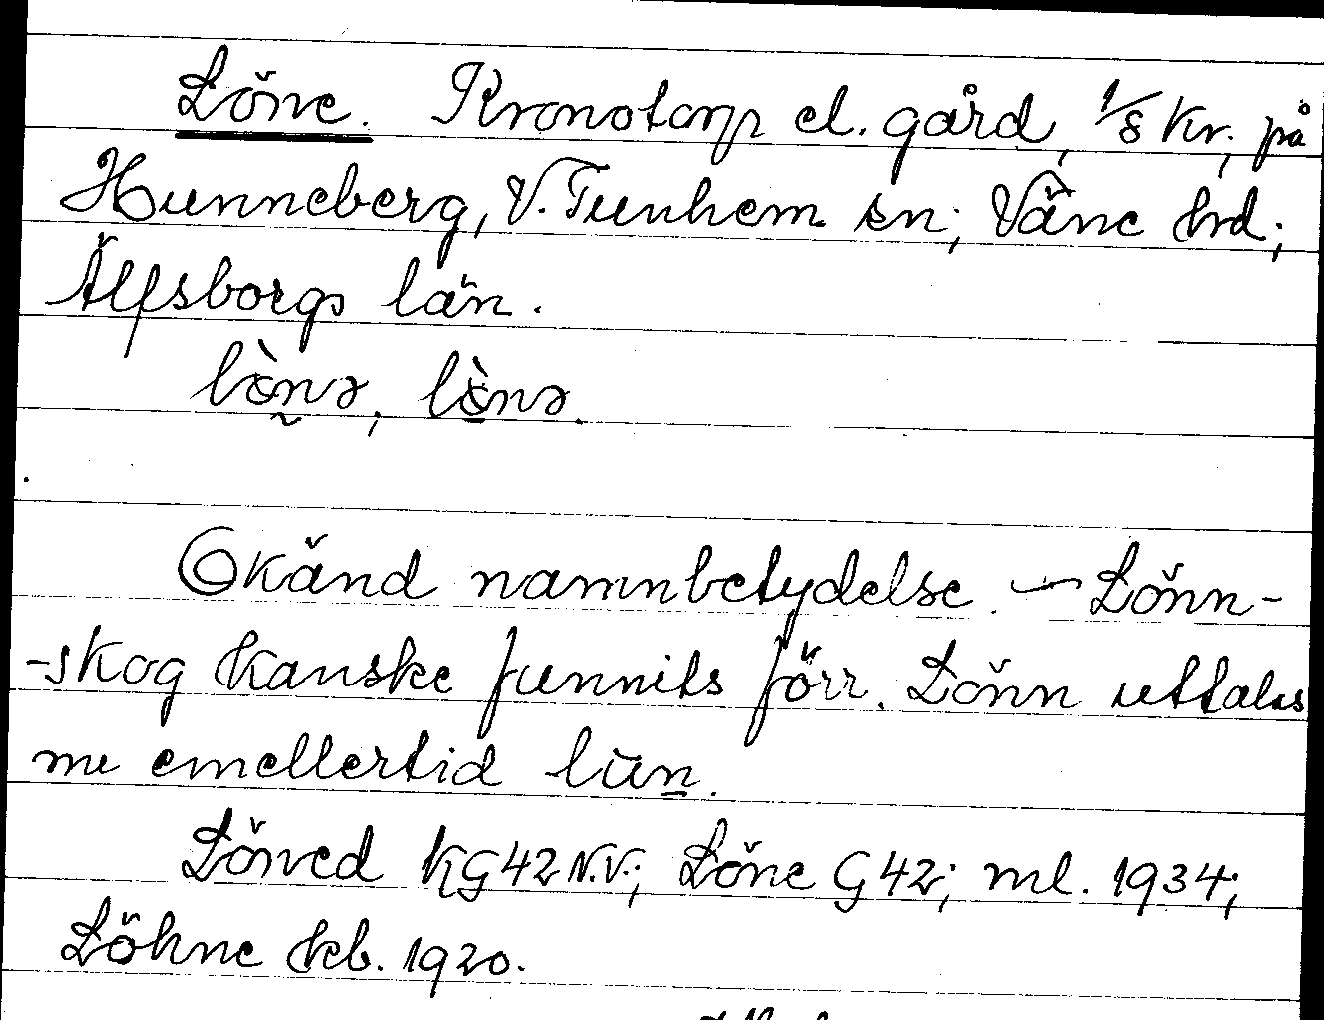 Löne. Kronotorp el. gård, 1/8 kr; på
Hunneberg, V. Tunhem sn; Väne hrd;
Älfsborgs län.
lònə, lònə.
Okänd namnbetydelse. — Lönn-
-skog kanske funnits förr. Lönn uttalas
nu emellertid lūn.
Löned KG42 N.V.; Löne G42; ml. 1934;
Löhne kb. 1920.